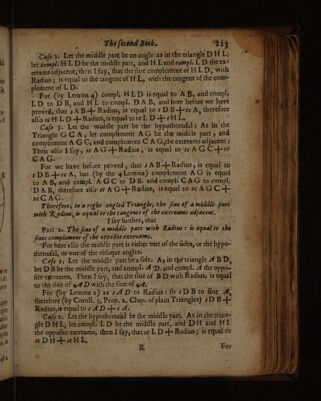 The second Book. 123
Case 2. Let the middle part be an angle as in the triangle D H L;
let compl. H L D be the middle part, and H L and compl. L D the ex-
treams adjacent, then I say, that the sine complement of H L D, with
Radius; is equal to the tangent of HL, with the tangent of the com-
plement of L D.
For (by Lemma 4) compl. H L D is equal to A B, and compl.
L D to D B, and H L to compl. D A B, and here before we have
proved, that s A B + Radius, is equal to t D B + tc A, therefore
also sc H L D + Radius, is equal to tc L D + t H L,
Case 3. Let the middle part be the hypothenusal: As in the
Triangle G C A, let complement A G be the middle part, and
complement A G C, and complement C A G, the extreams adjacent;
Then also I say, sc A G + Radius, is equal to tc A G C + tc
C A G.
For we have before proved, that s A B + Radius, is equal to
t D B + tc A, but (by the 4 Lemma) complement A G is equal
to A B, and compl. A G C to D B. and compl. C A G to compl.
D A B, therefore also sc A G + Radius, is equal to tc A G C +
tc C A G.
Therefore, in a right angled Triangle, the sine of a middle part
with Radius, is equal to the tangents of the extreames adjacent.
I say further, that
Part 2. The sine of a middle part with Radius: is equal to the
sines complement of the opposite extreams.
For here also the middle part is either one of the sides, or the hypo-
thenusal, or one of the oblique angles.
Case 1. Let the middle part be a side. As in the triangle A B D,
let D B be the middle part, and compl. A D, and compl. A the oppo-
site extreams. Then I say, that the sine of B D with Radius, is equal
to the sine of A D with the sine of A.
For (by Lemma 2) as s A D to Radius: so s D B to sine A,
therefore (by Coroll. 1, Prop. 2, Chap. of plain Triangles) s D B +
Radius, is equal to s A D + s A.
Case 2. Let the hypothenusal be the middle part. As in the trian-
gle D H L, let compl. L D be the middle part, and D H and H L
the opposite extreams, then I say, that sc L D + Radius; is equal to
sc D H + sc H L.
R For